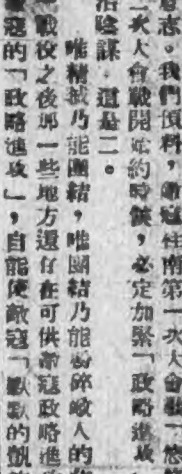 意志。我們預料，敵寇在南第一次大會戰
二次大會戰開始的時候，必定加緊「政略進攻」
治陰謀，這是二。
唯積極乃能團結，唯團結乃能粉碎敵人的
戰役之後那一些地方還存在可供敵寇政略進
寇的「政略進攻」，自能使敵寇「默默的